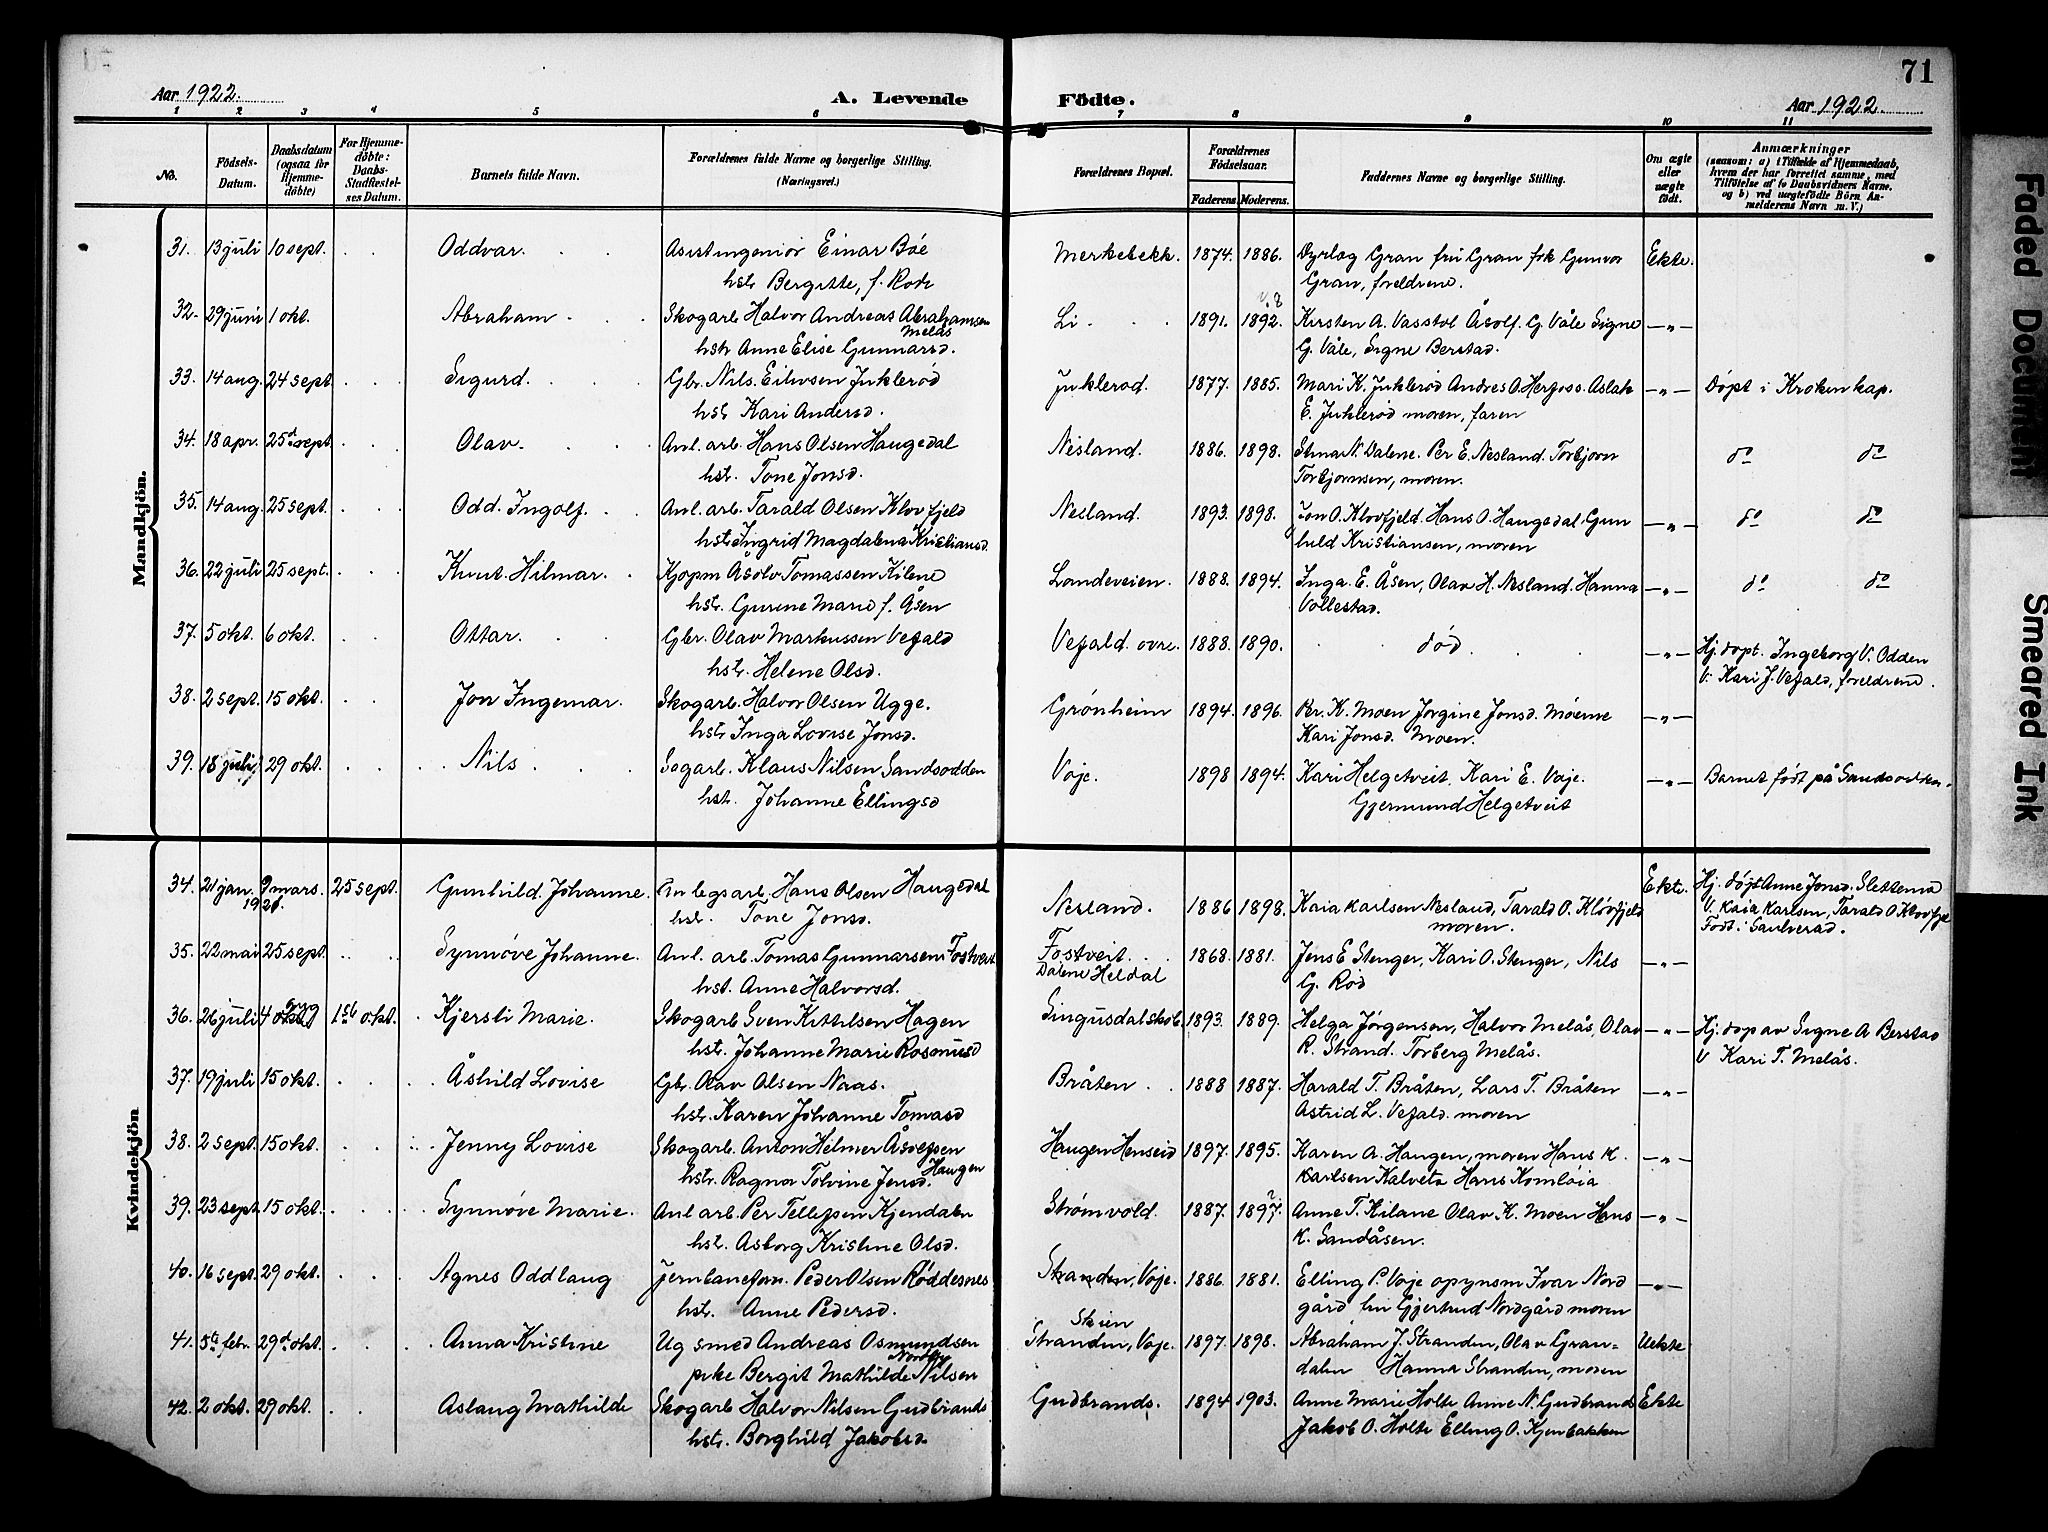 71
Aar 1922.
A. Levende
Födte.
Aar 1922
1 2 3 4 5 6 7 8 9 10 11
No.
Födsels-
Datum.
Daabsdatum
(ogsaa for
Hjemme-
döbte)
For Hjemme-
döbte:
Daabs-
Stadfæstel-
ses Datum.
Barnets fulde Navn.
Forældrenes fulde Navne og borgerlige Stilling.
(Næringsvei.)
Forældrenes Bopæl.
Forældrenes
Födselsaar.
Faderens. Moderens.
Faddernes Navne og borgerlige Stilling.
Om ægte
eller
uægte
födt.
Anmærkninger
(saasom: a) i Tilfælde af Hjemmedaab,
hvem der har forrettet samme, med
Tilföielse af to Daabsvidners Navne,
og b) ved uægtefödte Börn An-
melderens Navn m. V.)
Mandkjön.
31. 13 juli 10 sept. Oddvar. Assistingeniør Einar Bøe Merkebekk. 1874. 1886. Dyrlæg Gran fru Gran frk Gunvor Ekte.
hstr Bergitte, f. Rode Gran, foreldrene.
32. 29 juni 1 okt. Abraham Skogarb Halvor Andreas Abrahamsen Li 1891. 1892. Kirsten A. Vasstol Åsolf. G. Våle Signe —"—
Melås
hstr Anne Elise Gunnarsd. G. Våle, Signe Berstad.
33. 14 aug. 24 sept. Sigurd. Gbr. Nils. Eilivsen Juklerød Juklerød. 1877. 1885. Mari K. Juklerød Andres O. Hergoss. Aslak —"— Døpt i Kroken kap.
hstr Kari Andersd. E. Juklerød moren, faren
34. 18 apr. 25d sept Olav Anl. arb. Hans Olsen Haugedal Nesland. 1886. 1898. N. Dalene. Per E. Nesland. Torbjørn do do
hstr. Tone Jonsd. Torbjørnsen, moren.
35. 14 aug. 25 sept. Odd. Ingolf. Anl. arb. Tarald Olsen Klovfjeld Nesland. 1893. 1898. Jon O. Klovfjeld. Hans O. Haugedal. Gun —"— do do
hstr Ingrid Magdalena Kristiansd. hild Kristiansen, moren
36. 22 juli 25 sept. Knut Hilmar. Kjøpm Åsolv Tomassen Kilene Landeveien. 1888. 1894. Inga. E. Åsen, Olav H. Nesland. Hanna —"— do do
hstr. Gurine Marie f. Åsen Vollestad.
37. 5 okt. 6 okt. Ottar. Gbr. Olav Markussen Vefald Vefald. øvre. 1888. 1890. død. —"— Hj. døpt. Ingeborg V. Odden
hstr. Helene Olsd. V. Kari J. Vefald, foreldrene.
38. 2 sept. 15 okt. Jon Ingemar. Skogarb. Halvor Olsen Ugge. Grønheim 1894. 1896. Per. K. Moen Jorgine Jonsd. Moerne —"—
hstr Inga Lovise Jonsd. Kari Jonsd. Moen.
39. 18 juli 29 okt. Nils Sagarb. Klaus Nilsen Sandsodden Voje. 1898 1894. Kari Helgetveit, Kari E. Voje. —"— Barnet født på Sandsodden.
hst. Johanne Ellingsd Gjermund Helgetveit
Kvindekjön
34. 21 jan. 9 mars. 25 sept. Gunhild. Johanne. Anlegsarb. Hans Olsen Haugedal Nesland. 1886 1898. Kaia Karlsen Nesland, Tarald O. Kløvfjeld Ekte. Hj. døpt Anne Jonsd. Slettemo
1921. hst. Tone Jonsd. moren. V. Kaia Karlsen, Tarald O Klovfjel
Født i Saulverad.
35. 22 mai 25 sept. Synnøve Johanne. Anl. arb. Tomas Gunnarsen Fostveit Fostveit. 1868. 1881. Jens E Stenger, Kari O. Stenger, Nils —"—
Dalene Heldal
hst. Anne Halvorsd. G. Rød
36. 26 juli 4 aug 1st okt. Kjersti Marie. Skogarb Sven Kittilsen Hagen Singusdalskob. 1893. 1889. Helga Jørgensen, Halvor Melås, Olav —"— Hj. døp av Signe A Berstad
hst. Johanne Marie Rasmusd R. Strand. Torberg Melås. V Kari T. Melås.
37. 19 juli 15 okt. Åshild Lovise Gbr. Olav Olsen Naas. Bråten 1888 1887. Harald T. Bråten, Lars T. Bråten —"—
hstr. Karen Johanne Tomasd Astrid L. Vefald. moren
38. 2 sept. 15 okt. Jenny Lovise Skogarb. Anton Helmer Åsvefsen Haugen Henseid 1897. 1895. Karen A. Haugen, moren Hans K. —"—
hstr. Ragna Tolvine Jensd. Haugen Karlsen Kalveto Hans Komløia
39. 23 sept. 15 okt. Synnøve Marie. Anl arb. Per Tellefsen Kjendalen Strømvold. 1887. 1897. Anne T. Kilane Olav K. Moen Hans —"—
hst. Asborg Kristine Olsd. K. Sandåsen.
40. 16 sept. 29 okt. Agnes Oddlaug Jernbaneform. Peder Olsen Røddesnes Stranden, Voje. 1886. 1881. Elling P. Voje opynsm Ivar Nord —"—
hst. Anne Pedersd. gård fru Gjertrud Nordgård moren
41. 5te febr. 29d okt. Anna Kristine Ug smed Andreas Osmundsen Skien
Stranden, Voje. 1897. 1898. Abraham J. Stranden, Olav Gran- Uekte
pike Bergit Mathilde Nilsen dalen Hanna Stranden, moren
42. 2 okt. 29 okt. Aslaug Mathilde Skogarb Halvor Nilsen Gudbrands Gudbrands. 1894 1903. Anne Marie Holte Anne N. Gudbrands Ekte
hstr. Borghild Jakobsd. Jakob O. Holte Elling O. Kjenbakken
Faded Document
Smeared Ink